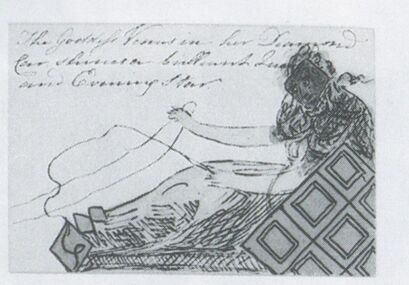 The Goddess Venus in her Diamond
Car, shines a brilliant
and Evening Star